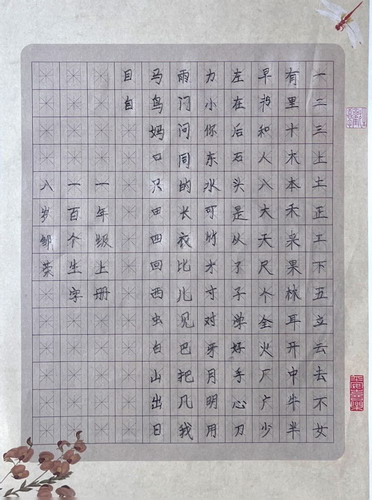 一二三上土正工下五立云去不女
有里十木本禾米果林耳开中牛半
早书和人入大天尺个全火厂广少
左在后石头是从了子学好手心刀
力小你东水可竹才寸对牙月明用
雨门问同的长衣比儿见巴把凡我
马鸟妈口只田四回西虫白山出日
目自
一年级上册
一百个生字
八岁邹荣